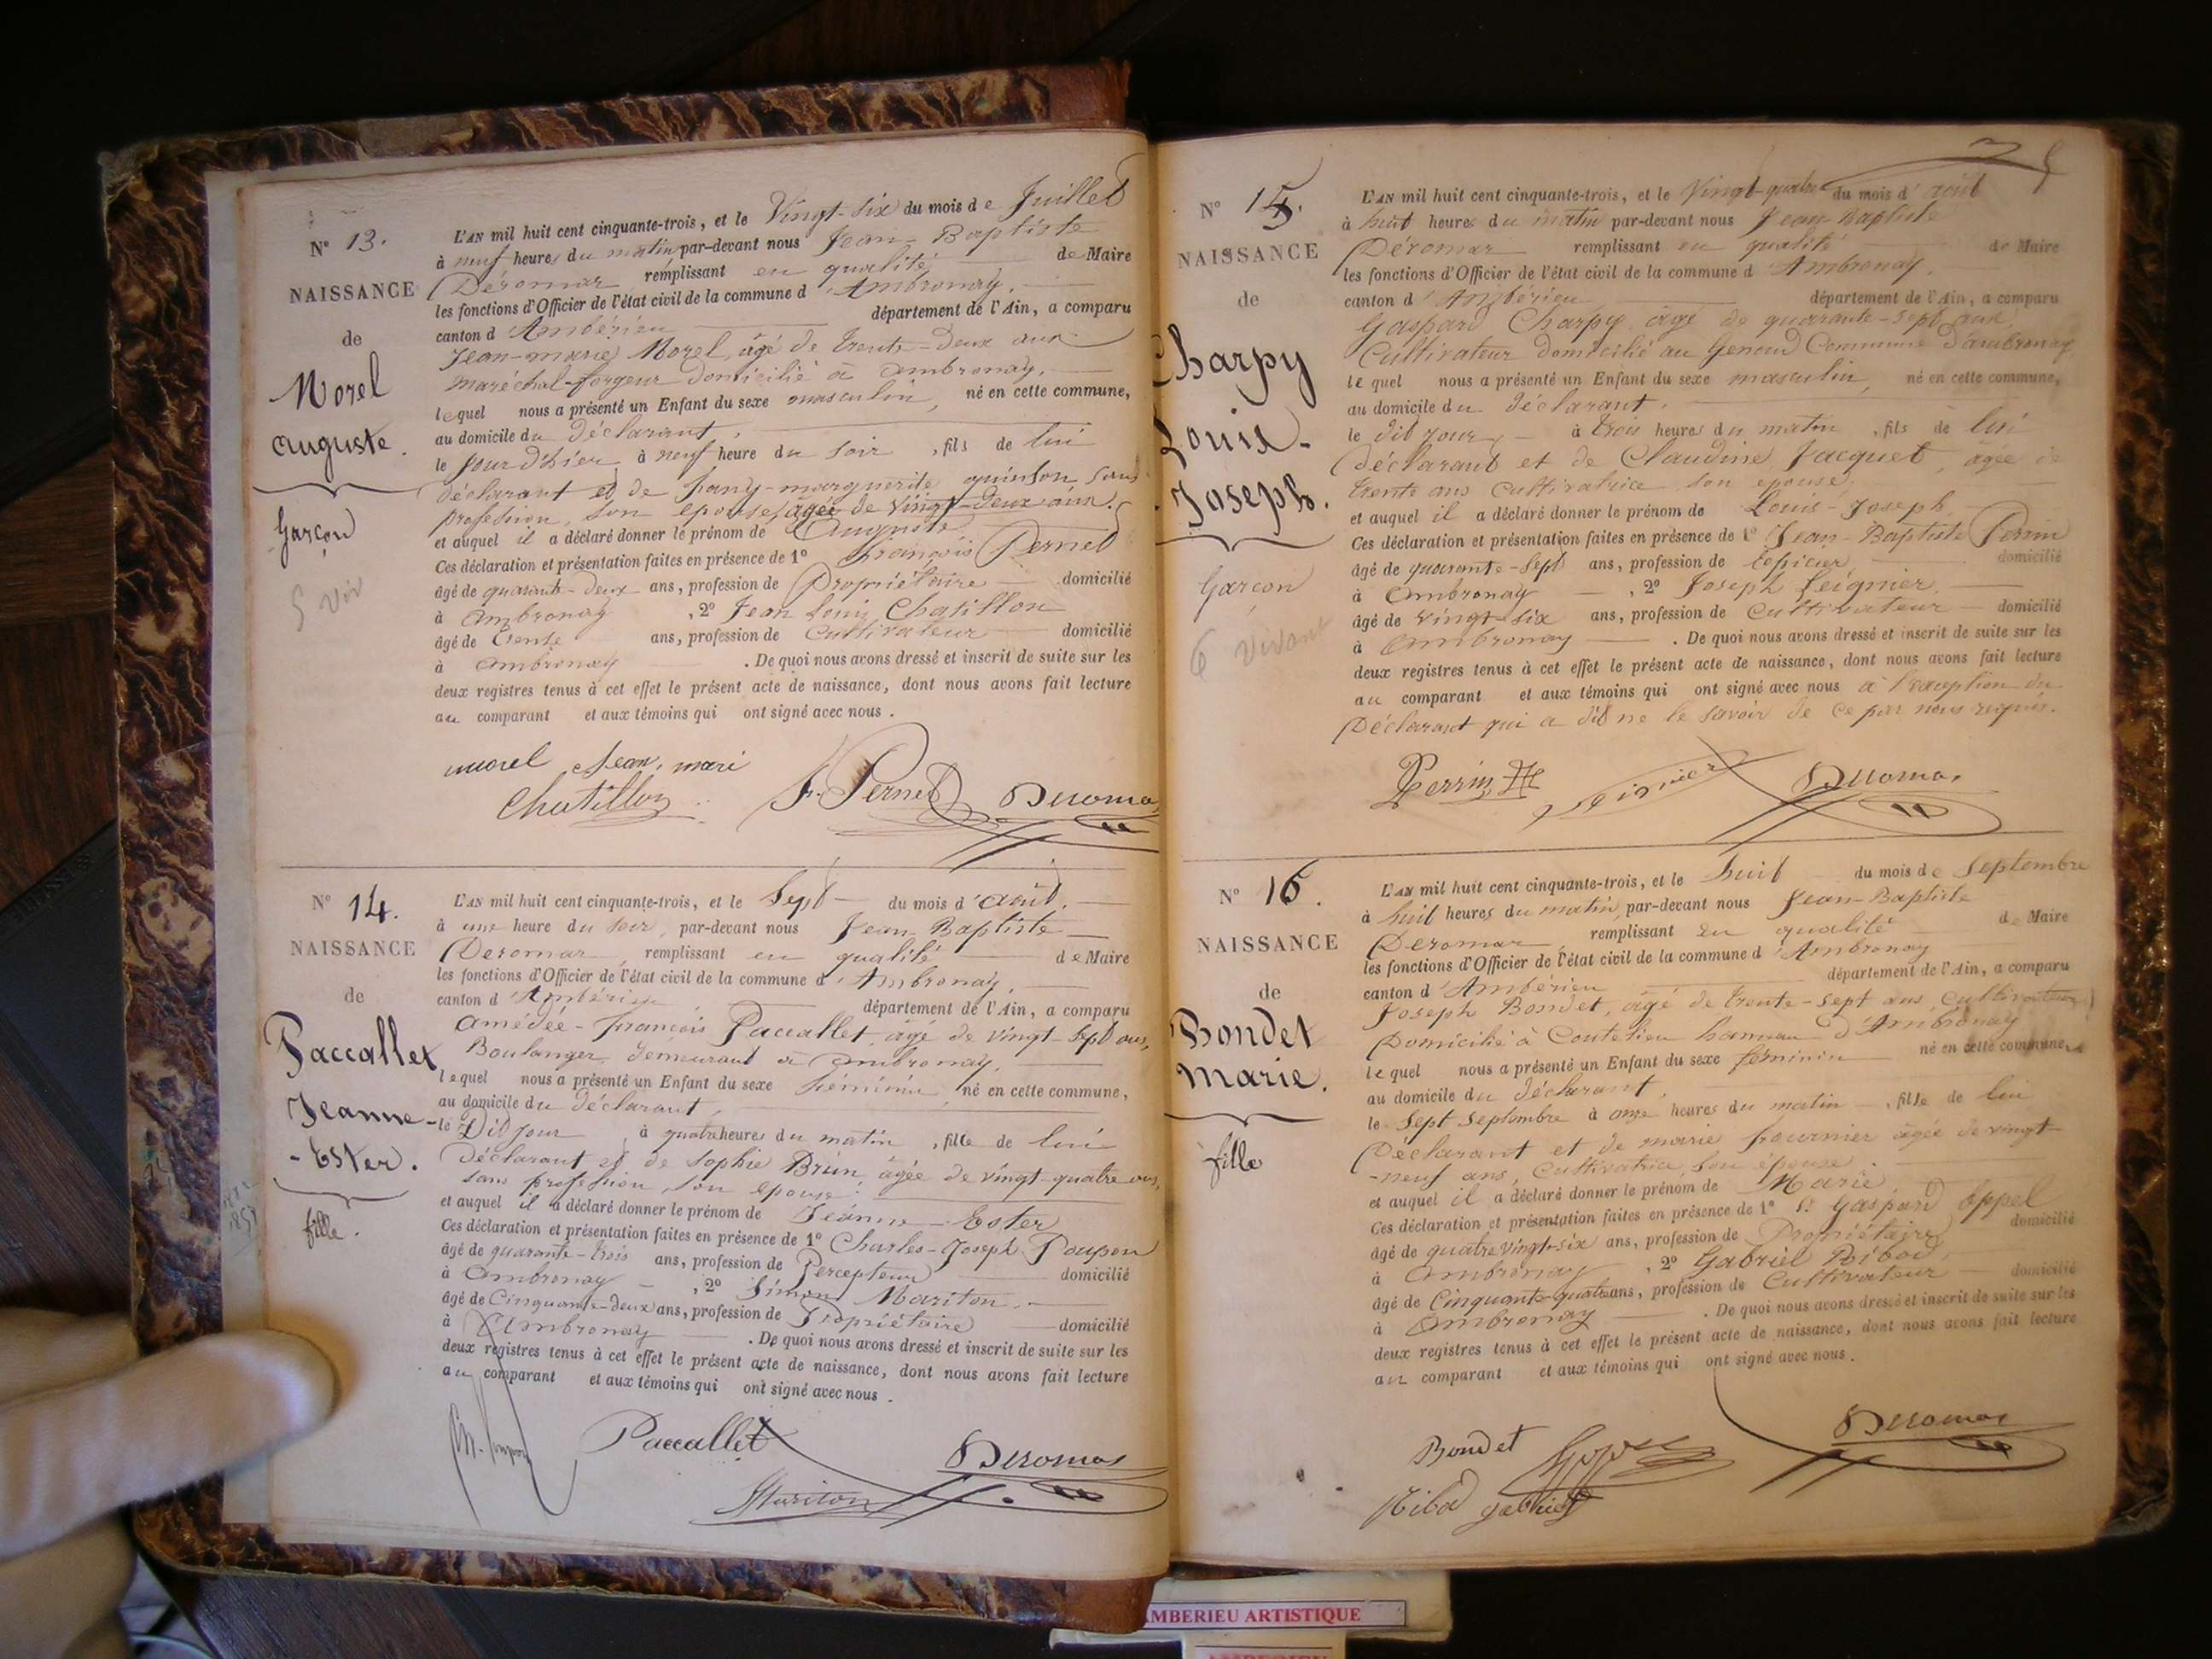 N° 13.
NAISSANCE
de
Morel
auguste.
Garçon
L'AN mil huit cent cinquante-trois, et le Vingt-six du mois de Juillet
à neuf heures du matin par-devant nous Jean-Baptiste
Déromas remplissant en qualité de Maire
les fonctions d'Officier de l'état civil de la commune d'Ambronay,
canton d'Ambérieu département de l'Ain, a comparu
Jean-marie Morel, âgé de trente-deux ans
maréchal-forgeur domicilié à ambronay,
lequel nous a présenté un Enfant du sexe masculin, né en cette commune,
au domicile du déclarant,
le jour d'hier à neuf heure du soir, fils de lui
déclarant et de fany-marguerite quinson, sans
profession, son epouse, âgée de vingt-deux ans.
et auquel il a déclaré donner le prénom de Auguste
Ces déclaration et présentation faites en présence de 1° françois Pernet
âgé de quarante-deux ans, profession de Propriétaire domicilié
à ambronay, 2° Jean Louis Chatillon
âgé de trente ans, profession de Cultivateur domicilié
à ambronay. De quoi nous avons dressé et inscrit de suite sur les
deux registres tenus à cet effet le présent acte de naissance, dont nous avons fait lecture
au comparant et aux témoins qui ont signé avec nous.
morel Jean, mari
Chatillon F. Pernet Deromas
N° 14.
NAISSANCE
de
Paccallet
Jeanne-
-Ester.
fille.
L'AN mil huit cent cinquante-trois, et le Sept du mois d'août,
à une heure du soir, par-devant nous Jean-Baptiste
Deromas, remplissant en qualité de Maire
les fonctions d'Officier de l'état civil de la commune d'Ambronay,
canton d'Ambérieu département de l'Ain, a comparu
amédée-françois Paccallet, âgé de vingt-sept ans,
Boulanger, demeurant à ambronay,
lequel nous a présenté un Enfant du sexe féminin, né en cette commune,
au domicile du déclarant,
le Dit jour, à quatre heures du matin, fille de lui
déclarant et de sophie Brun, âgée de vingt-quatre ans,
sans profession, son epouse.
et auquel il a déclaré donner le prénom de Jeanne-Ester
Ces déclaration et présentation faites en présence de 1° Charles-Joseph Poupon
âgé de quarante-trois ans, profession de Percepteur domicilié
à ambronay, 2° Simon Mariton.
âgé de Cinquante-deux ans, profession de Propriétaire domicilié
à Ambronay. De quoi nous avons dressé et inscrit de suite sur les
deux registres tenus à cet effet le présent acte de naissance, dont nous avons fait lecture
au comparant et aux témoins qui ont signé avec nous.
Paccallet Deromas
Mariton
N° 15.
NAISSANCE
de
Charpy
Louis-
Joseph.
Garçon
6 Vivant
L'AN mil huit cent cinquante-trois, et le Vingt-quatre du mois d'août
à huit heures du matin par-devant nous Jean-Baptiste
Déromas remplissant en qualité de Maire
les fonctions d'Officier de l'état civil de la commune d'Ambronay,
canton d'Ambérieu département de l'Ain, a comparu
Gaspard Charpy âgé de quarante-sept ans,
Cultivateur domicilié au Genoud Commune d'ambronay
lequel nous a présenté un Enfant du sexe masculin, né en cette commune,
au domicile du déclarant,
le dit jour, à trois heures du matin, fils de lui
déclarant et de Claudine Jacquet, âgée de
trente ans cultivatrice son epouse,
et auquel il a déclaré donner le prénom de Louis-Joseph
Ces déclaration et présentation faites en présence de 1° Jean-Baptiste Perrin
âgé de quarante-sept ans, profession de Epicier domicilié
à ambronay, 2° Joseph Seignier,
âgé de vingt-six ans, profession de Cultivateur domicilié
à Ambronay. De quoi nous avons dressé et inscrit de suite sur les
deux registres tenus à cet effet le présent acte de naissance, dont nous avons fait lecture
au comparant et aux témoins qui ont signé avec nous à l'exception du
Déclarant qui a dit ne le savoir de ce par nous requis.
Perrin Deromas
N° 16.
NAISSANCE
de
Bondet
Marie.
fille
L'AN mil huit cent cinquante-trois, et le huit du mois de Septembre
à huit heures du matin par-devant nous Jean-Baptiste
Deromas remplissant en qualité de Maire
les fonctions d'Officier de l'état civil de la commune d'Ambronay
canton d'Ambérieu département de l'Ain, a comparu
Joseph Bondet, âgé de trente-sept ans, cultivateur
Domicilié à Coutelieu hameau d'Ambronay
lequel nous a présenté un Enfant du sexe féminin né en cette commune,
au domicile du déclarant,
le Sept Septembre à onze heures du matin, fille de lui
Déclarant et de marie fournier âgée de vingt-
-neuf ans, cultivatrice, son épouse
et auquel il a déclaré donner le prénom de Marie
Ces déclaration et présentation faites en présence de 1° Sr Gaspard Appel
âgé de quatre vingt-six ans, profession de Propriétaire domicilié
à ambronay, 2° Gabriel Ribod,
âgé de Cinquante-quatre ans, profession de Cultivateur domicilié
à ambronay. De quoi nous avons dressé et inscrit de suite sur les
deux registres tenus à cet effet le présent acte de naissance, dont nous avons fait lecture
au comparant et aux témoins qui ont signé avec nous.
Bondet Deromas
Ribod gabriel
AMBERIEU ARTISTIQUE